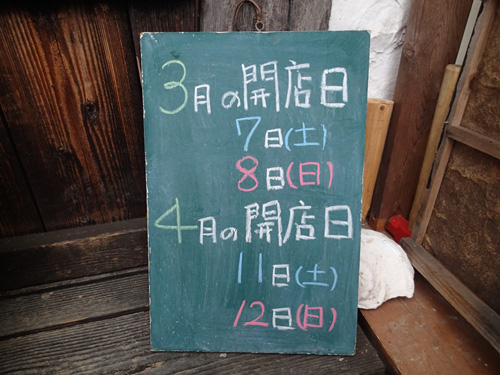 3月の開店日
7日(土)
8日(日)
4月の開店日
11日(土)
12日(日)